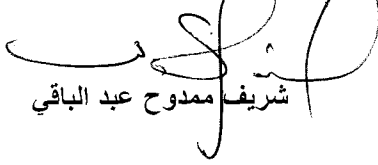 شريف ممدوح عبد الباقي